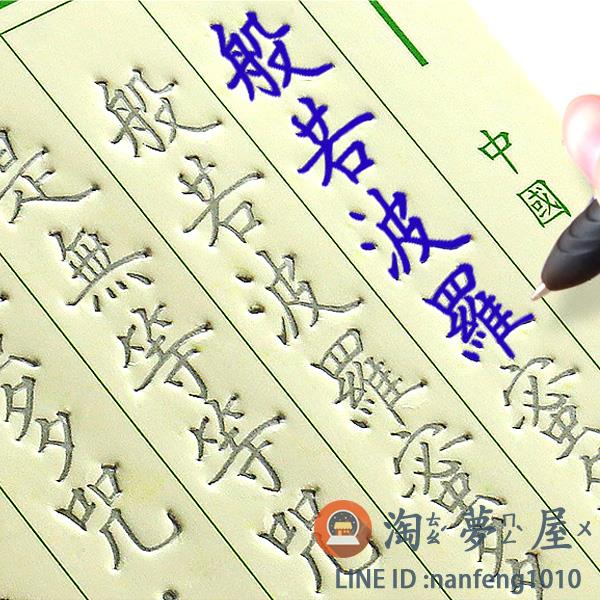 中國
般若波羅蜜
般若波羅蜜多
是無等等咒
多咒
淘夢屋
LINE ID :nanfeng1010